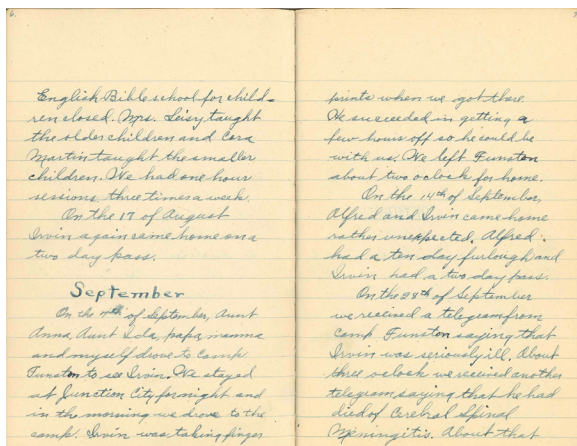 6.
English Bible school for child-
ren closed. Mrs. Leisy taught
the older children and Cora
Martin taught the smaller
children. We had one hour
sessions, three times a week.
On the 17 of August
Irvin again came home on a
two day pass.
September
On the 4th of September, Aunt
Anna, Aunt Ida, papa, mamma
and myself drove to Camp
Funston to see Irvin. We stayed
at Junction City for night and
in the morning we drove to the
camp. Irvin was taking finger
7
prints when we got there.
We succeeded in getting a
few hours off so he could be
with us. We left Funston
about two oclock for home.
On the 14th of September,
Alfred and Irvin came home
rather unexpected. Alfred
had a ten day furlough and
Irvin had a two day pass.
On the 28th of September
we received a telegram from
Camp Funston saying that
Irvin was seriously ill. About
three oclock we received another
telegram saying that he had
died of Cerebral Spinal
Meningitis. About that